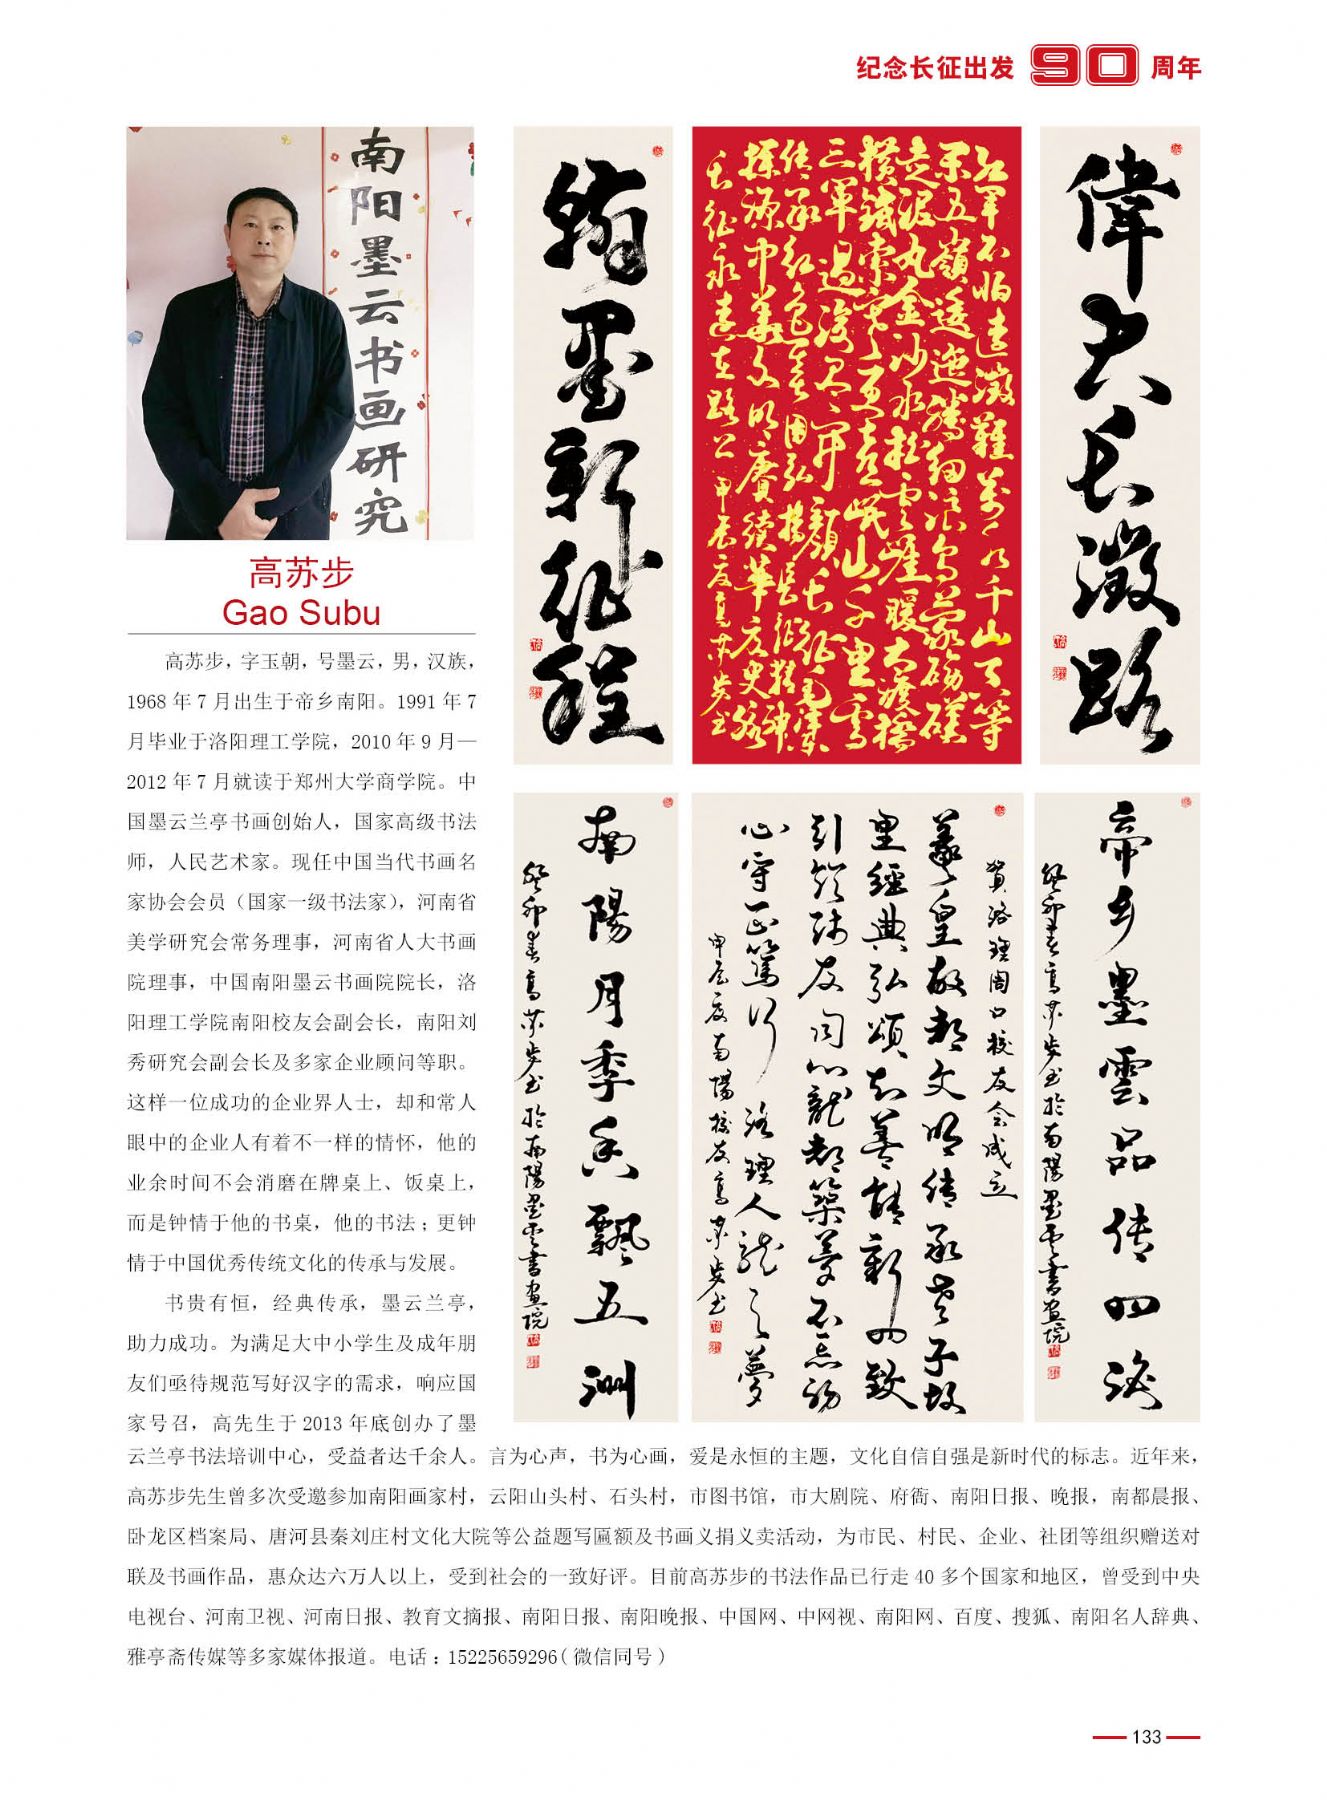 纪念长征出发90周年
南阳墨云书画研究
高苏步
Gao Subu
高苏步，字玉朝，号墨云，男，汉族，
1968 年 7 月出生于帝乡南阳。1991 年 7
月毕业于洛阳理工学院，2010 年 9 月—
2012 年 7 月就读于郑州大学商学院。中
国墨云兰亭书画创始人，国家高级书法
师，人民艺术家。现任中国当代书画名
家协会会员（国家一级书法家），河南省
美学研究会常务理事，河南省人大书画
院理事，中国南阳墨云书画院院长，洛
阳理工学院南阳校友会副会长，南阳刘
秀研究会副会长及多家企业顾问等职。
这样一位成功的企业界人士，却和常人
眼中的企业人有着不一样的情怀，他的
业余时间不会消磨在牌桌上、饭桌上，
而是钟情于他的书桌，他的书法；更钟
情于中国优秀传统文化的传承与发展。
书贵有恒，经典传承，墨云兰亭，
助力成功。为满足大中小学生及成年朋
友们亟待规范写好汉字的需求，响应国
家号召，高先生于 2013 年底创办了墨
云兰亭书法培训中心，受益者达千余人。言为心声，书为心画，爱是永恒的主题，文化自信自强是新时代的标志。近年来，
高苏步先生曾多次受邀参加南阳画家村，云阳山头村、石头村，市图书馆，市大剧院、府衙、南阳日报、晚报，南都晨报、
卧龙区档案局、唐河县秦刘庄村文化大院等公益题写匾额及书画义捐义卖活动，为市民、村民、企业、社团等组织赠送对
联及书画作品，惠众达六万人以上，受到社会的一致好评。目前高苏步的书法作品已行走 40 多个国家和地区，曾受到中央
电视台、河南卫视、河南日报、教育文摘报、南阳日报、南阳晚报、中国网、中网视、南阳网、百度、搜狐、南阳名人辞典、
雅亭斋传媒等多家媒体报道。电话：15225659296（微信同号）
偉大长澂路
红军不怕远澂難万水千山只等
闲五嶺逶迤腾细浪乌蒙磅礴
走泥丸金沙水拍云崖暖大渡橋
横鐵索寒更喜岷山千里雪
三軍過後尽开颜长征毛澤东
传承红色基因弘揚长征精神
探源中華文明赓续華夏史脉
长征永远在路上 甲辰夏高苏步书
翰墨新征程
帝乡墨雲品传四海
癸卯春高苏步书於南陽墨云書画院
贺洛理周口校友会成立
羲皇故都文明传承老子故
里經典弘颂知善能新四致
引领师友同心龍都築夢不忘初
心守正篤行 洛理人龙之夢
甲辰夏南陽校友高苏步书
南陽月季香飄五洲
癸卯春高苏步书於南陽墨云書画院
133